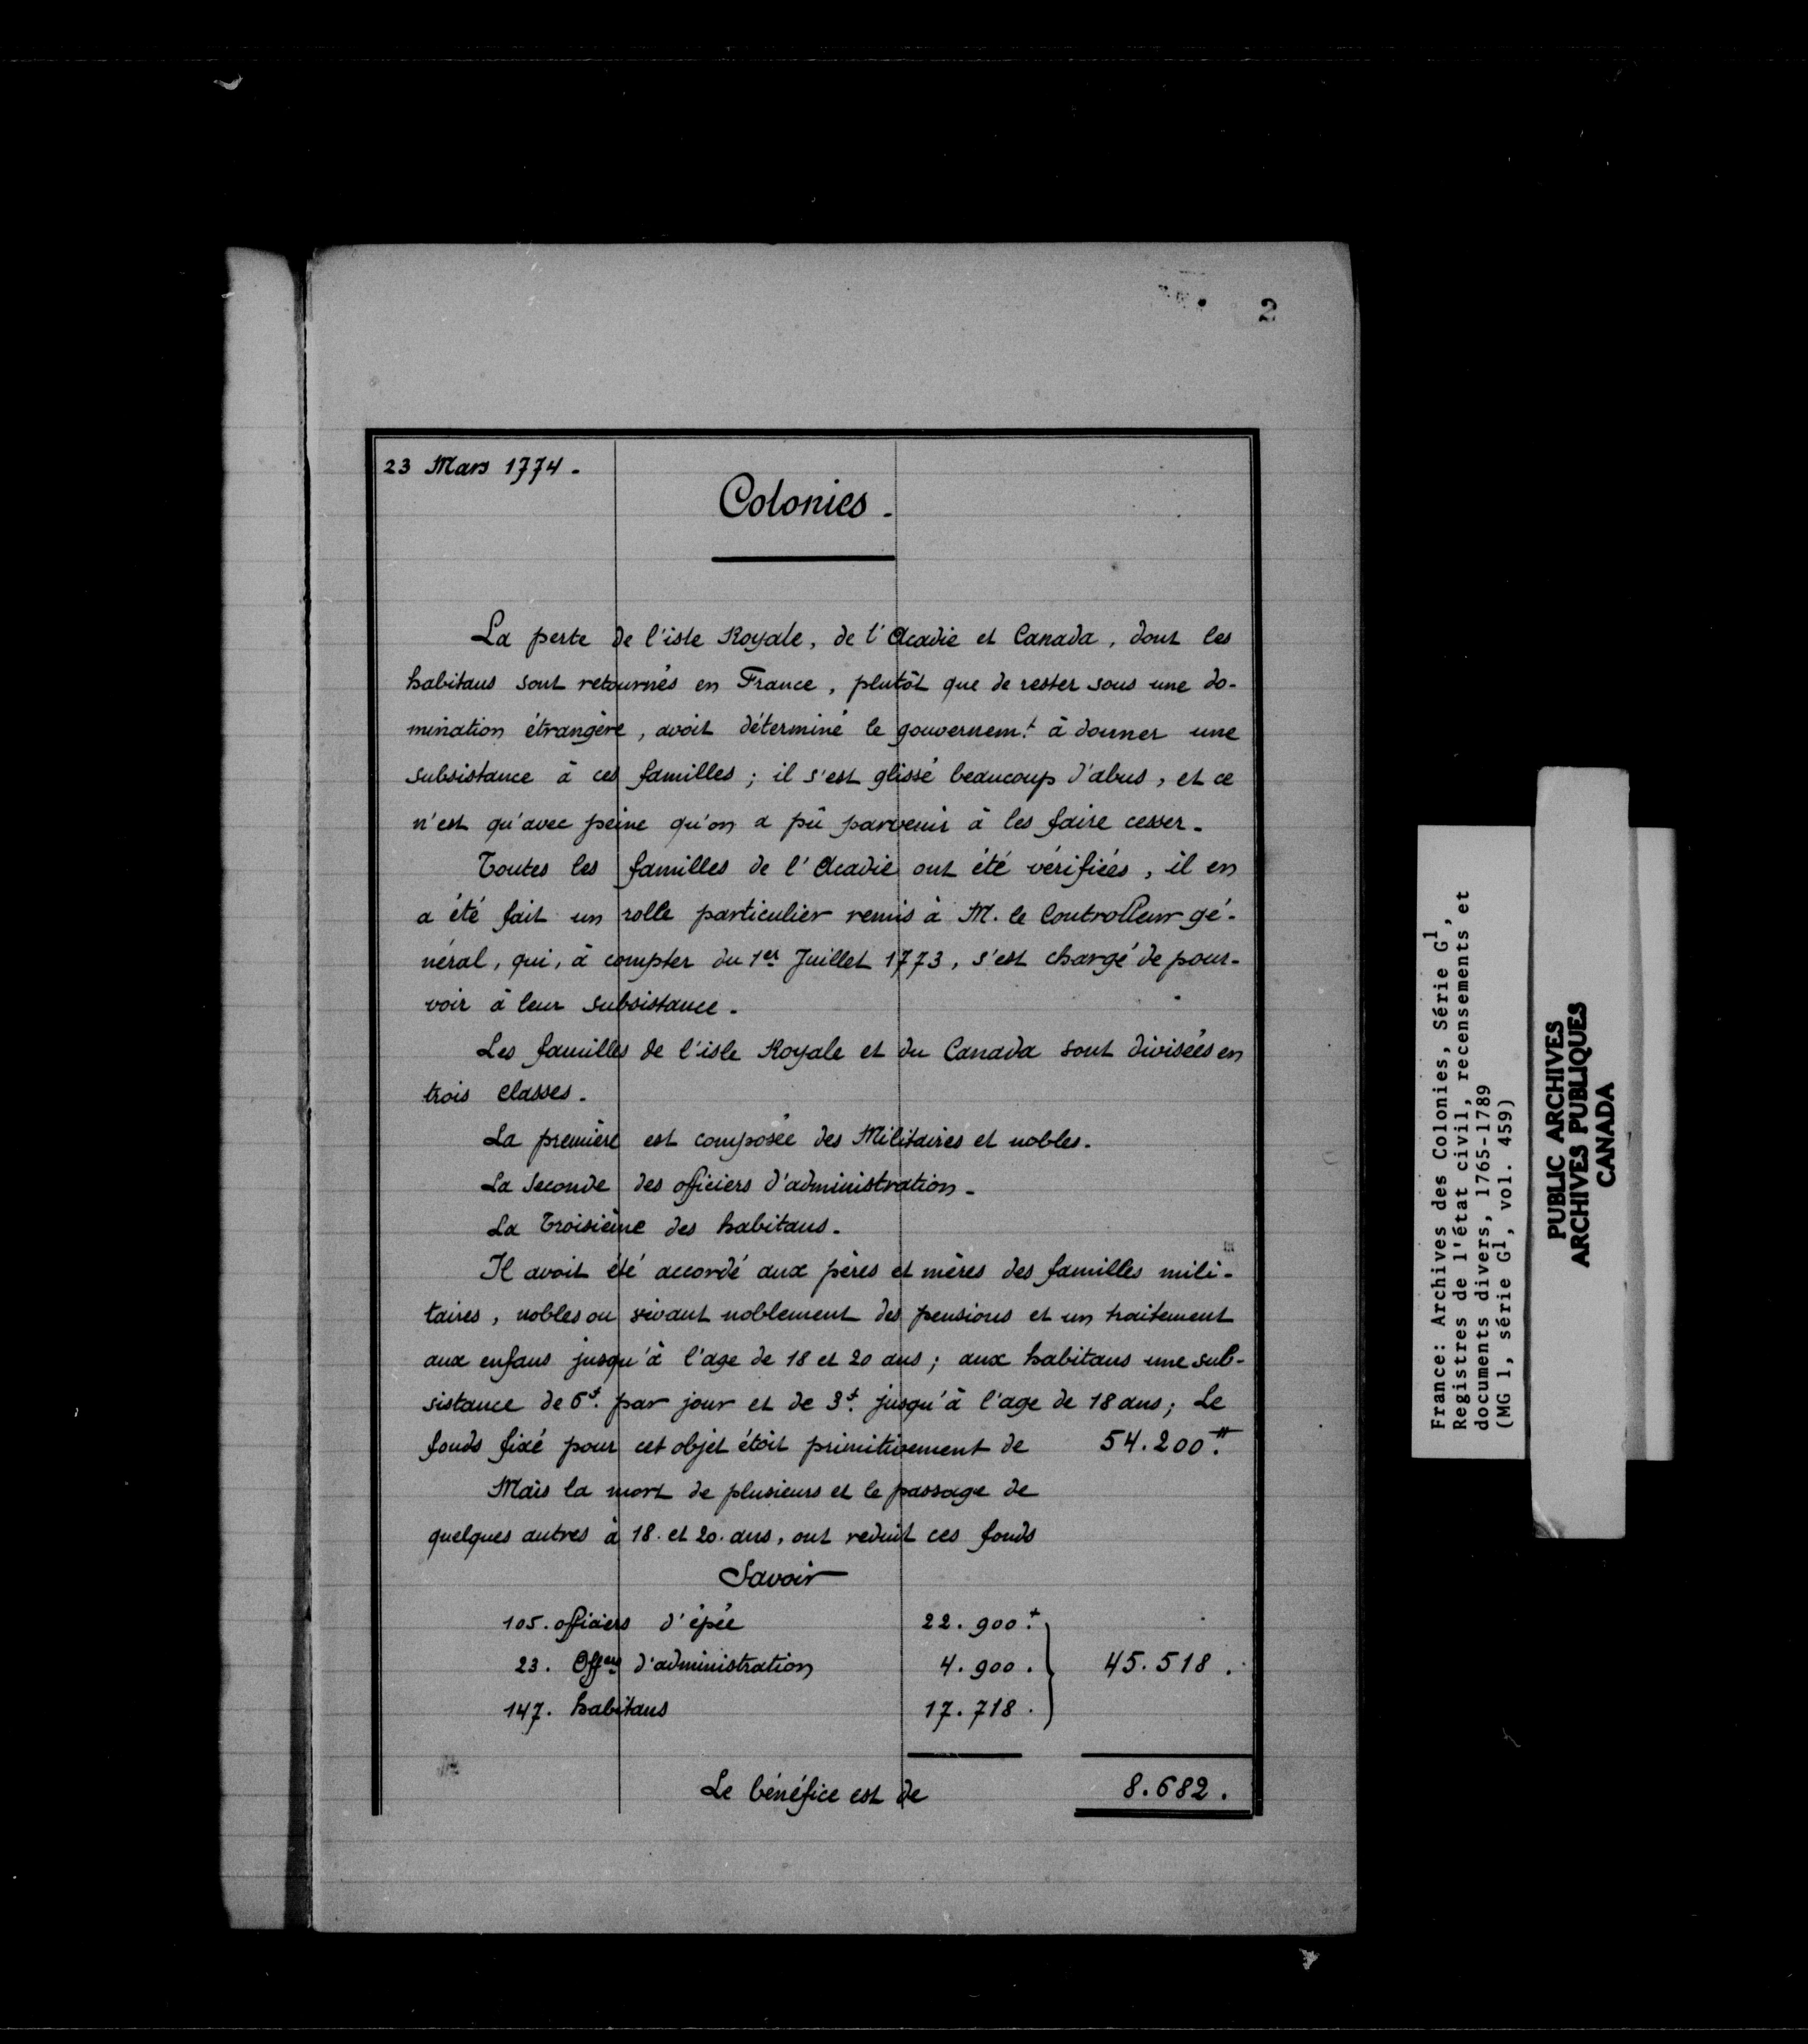 2
23 Mars 1774.
Colonies.
La perte de l'isle Royale, de l'Acadie et Canada, dont les
habitans sont retournés en France, plutôt que de rester sous une do-
mination étrangère, avoit déterminé le gouvernem.t à donner une
subsistance à ces familles; il s'est glissé beaucoup d'abus, et ce
n'est qu'avec peine qu'on a pû parvenir à les faire cesser.
Toutes les familles de l'Acadie ont été vérifiées, il en
a été fait un rolle particulier remis à M. le Controlleur gé-
néral, qui, à compter du 1er Juillet 1773, s'est chargé de pour-
voir à leur subsistance.
Les familles de l'isle Royale et du Canada sont divisées en
trois classes.
La première est composée des Militaires et nobles.
La Seconde des officiers d'administration.
La Troisième des habitans.
Il avoit été accordé aux pères et mères des familles mili-
taires, nobles ou vivant noblement des pensions et un traitement
aux enfans jusqu'à l'age de 18 et 20 ans; aux habitans une sub-
sistance de 6s. par jour et de 3s. jusqu'à l'age de 18 ans; Le
fonds fixé pour cet objet étoit primitivement de 54.200.tt
Mais la mort de plusieurs et le passage de
quelques autres à 18. et 20. ans, ont reduit ces fonds
Savoir
105. officiers d'épée 22.900.t
23. Offers d'administration 4.900. 45.518.
147. habitans 17.718.
Le bénéfice est de 8.682.
France: Archives des Colonies, Série G1,
Registres de l'état civil, recensements et
documents divers, 1765-1789
(MG 1, série G1, vol. 459)
PUBLIC ARCHIVES
ARCHIVES PUBLIQUES
CANADA